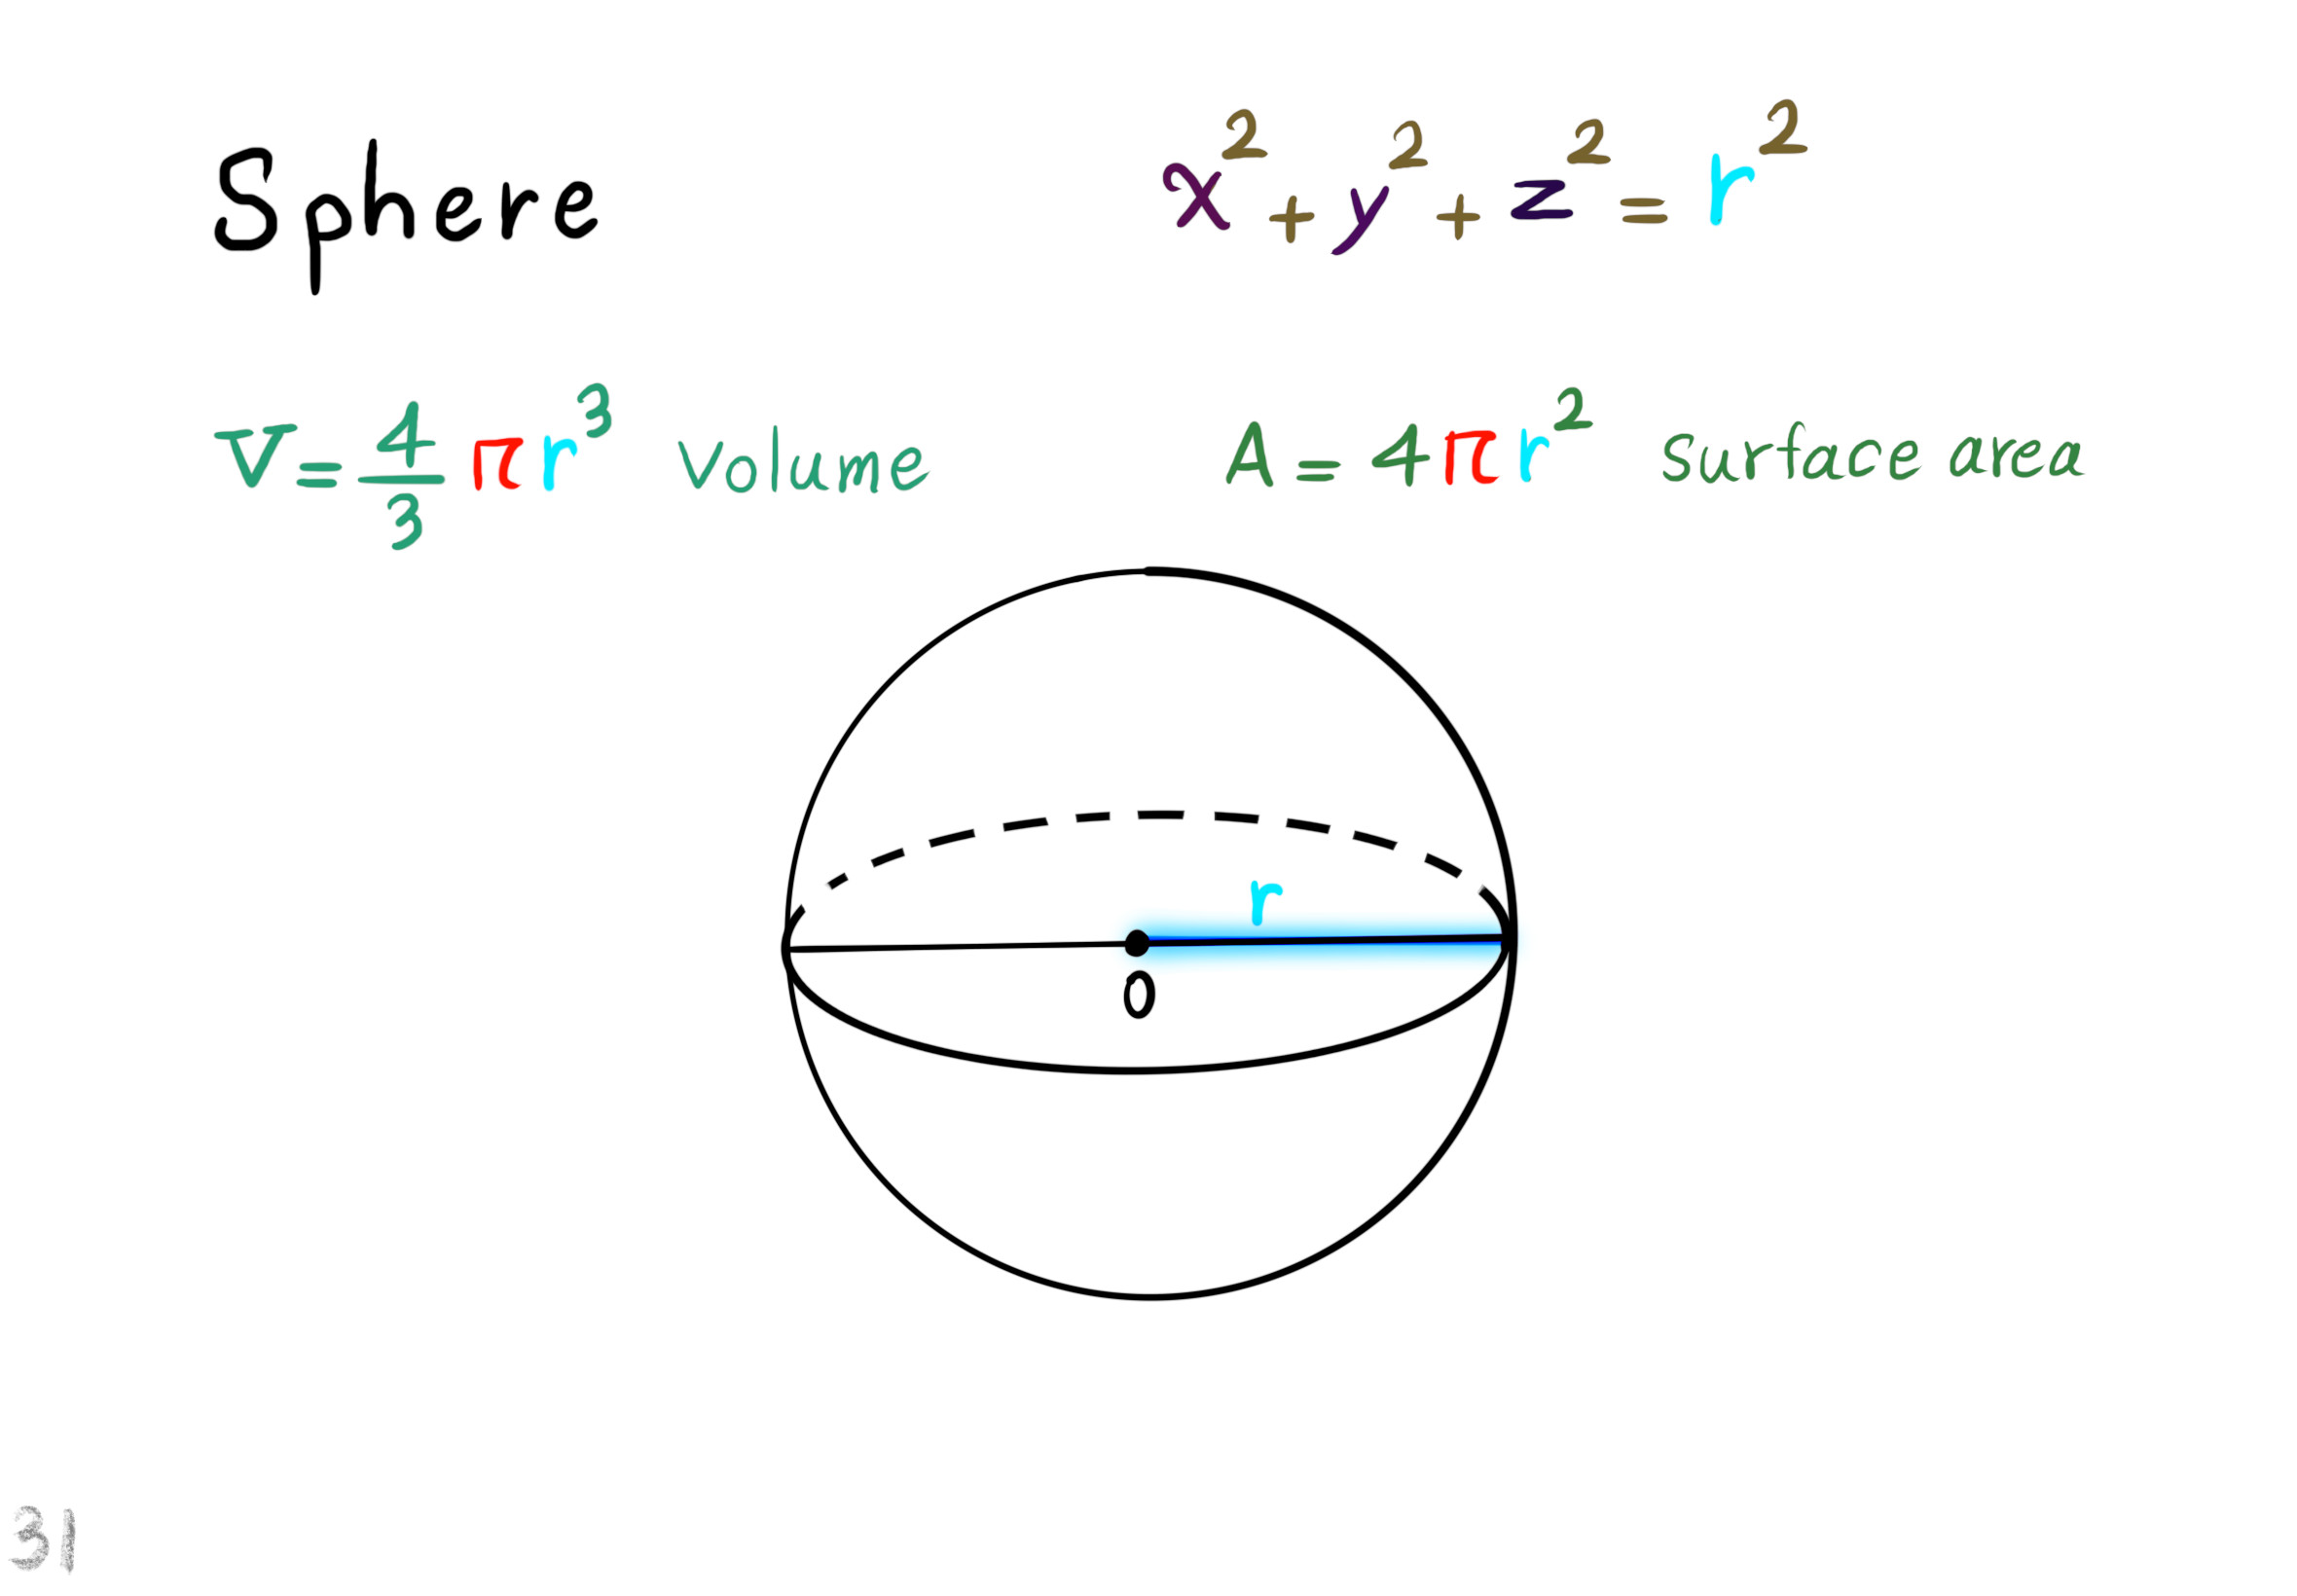 Sphere
x² + y² + z² = r²
V = 4/3 πr³ Volume
A = 4πr² surface area
r
0
31